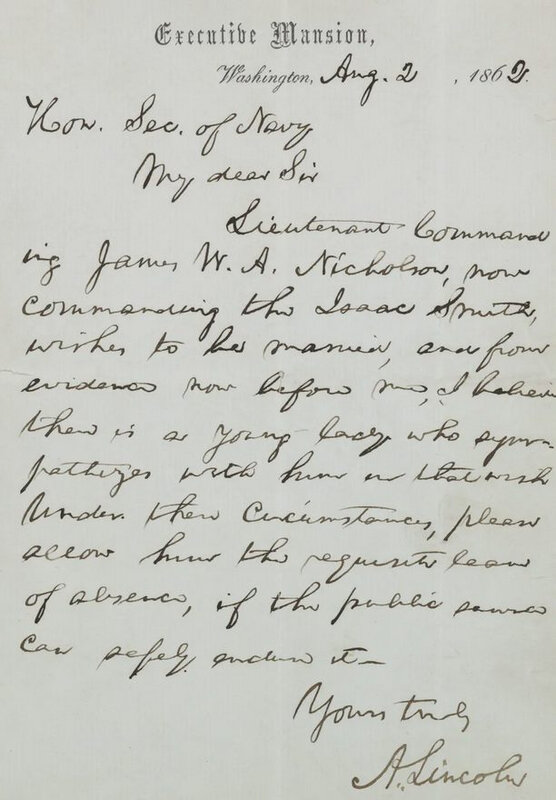 Executive Mansion,
Washington, Aug. 2, 1862.
Hon. Sec. of Navy
My dear Sir
Lieutenant Command
ing James W. A. Nicholson, now
commanding the Isaac Smith,
wishes to be married, and from
evidence now before me, I believe
there is a young lady who sym-
pathizes with him in that wish
Under these circumstances, please
allow him the requisite leave
of absence, if the public service
can safely endure it—
Yours truly
A. Lincoln